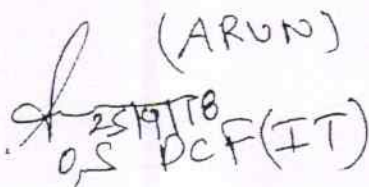 (ARUN)
25/9/18
DCF(IT)